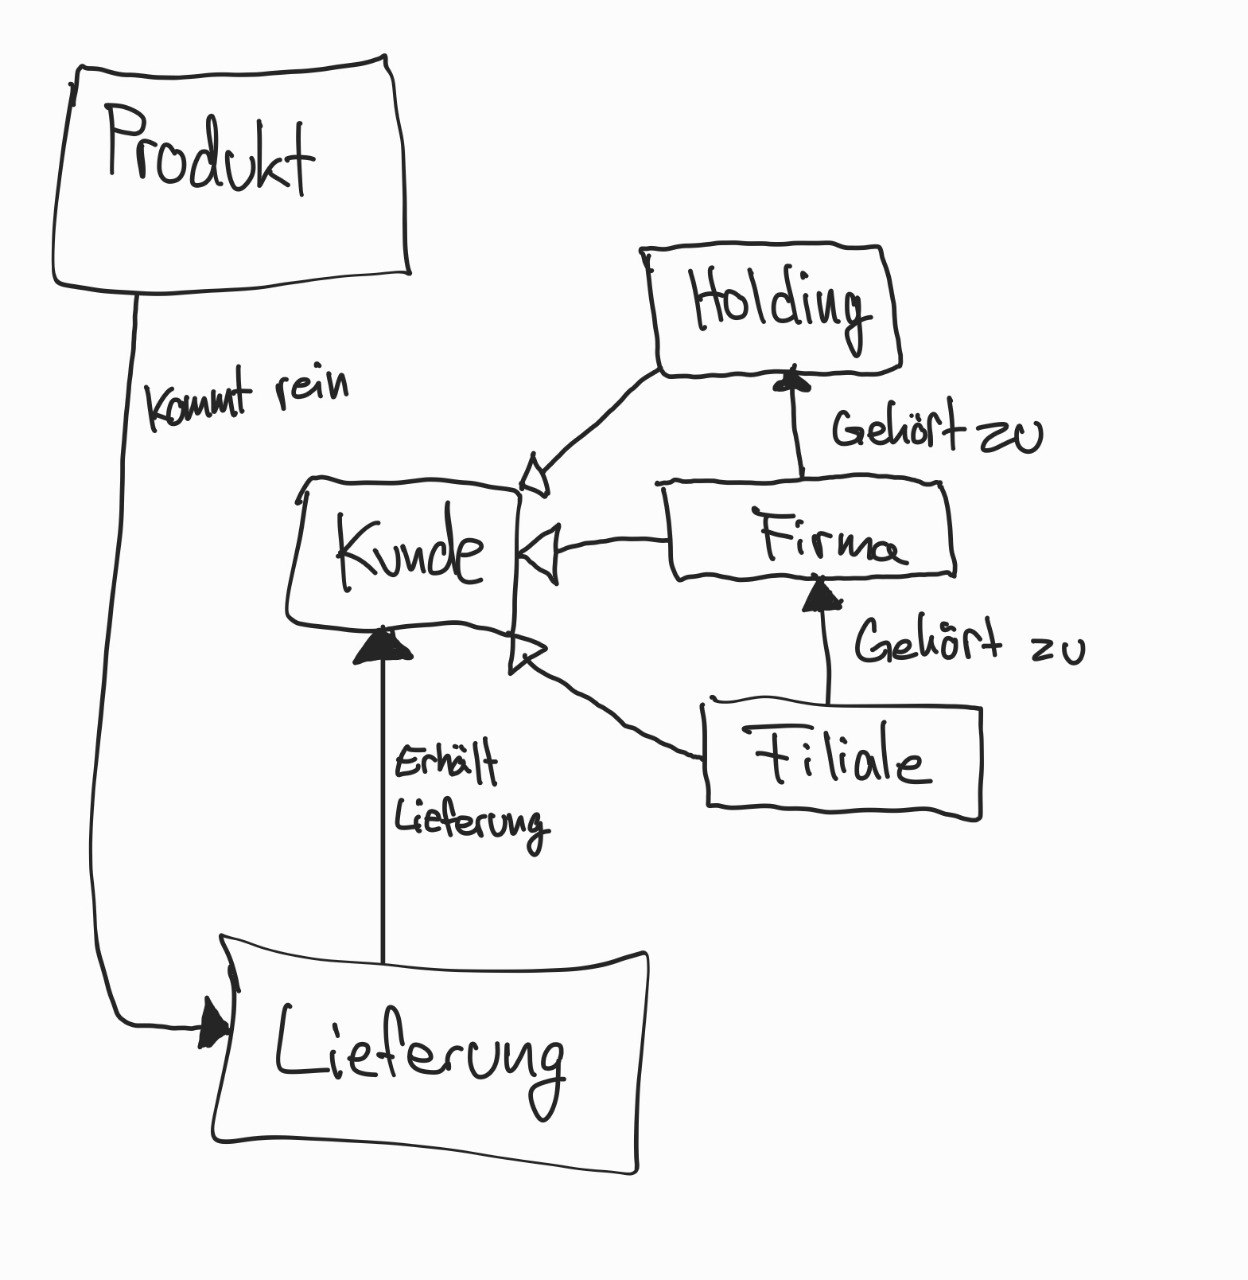 Produkt
Holding
Kommt rein
Gehört zu
Kunde
Firma
Gehört zu
Filiale
Erhält
Lieferung
Lieferung